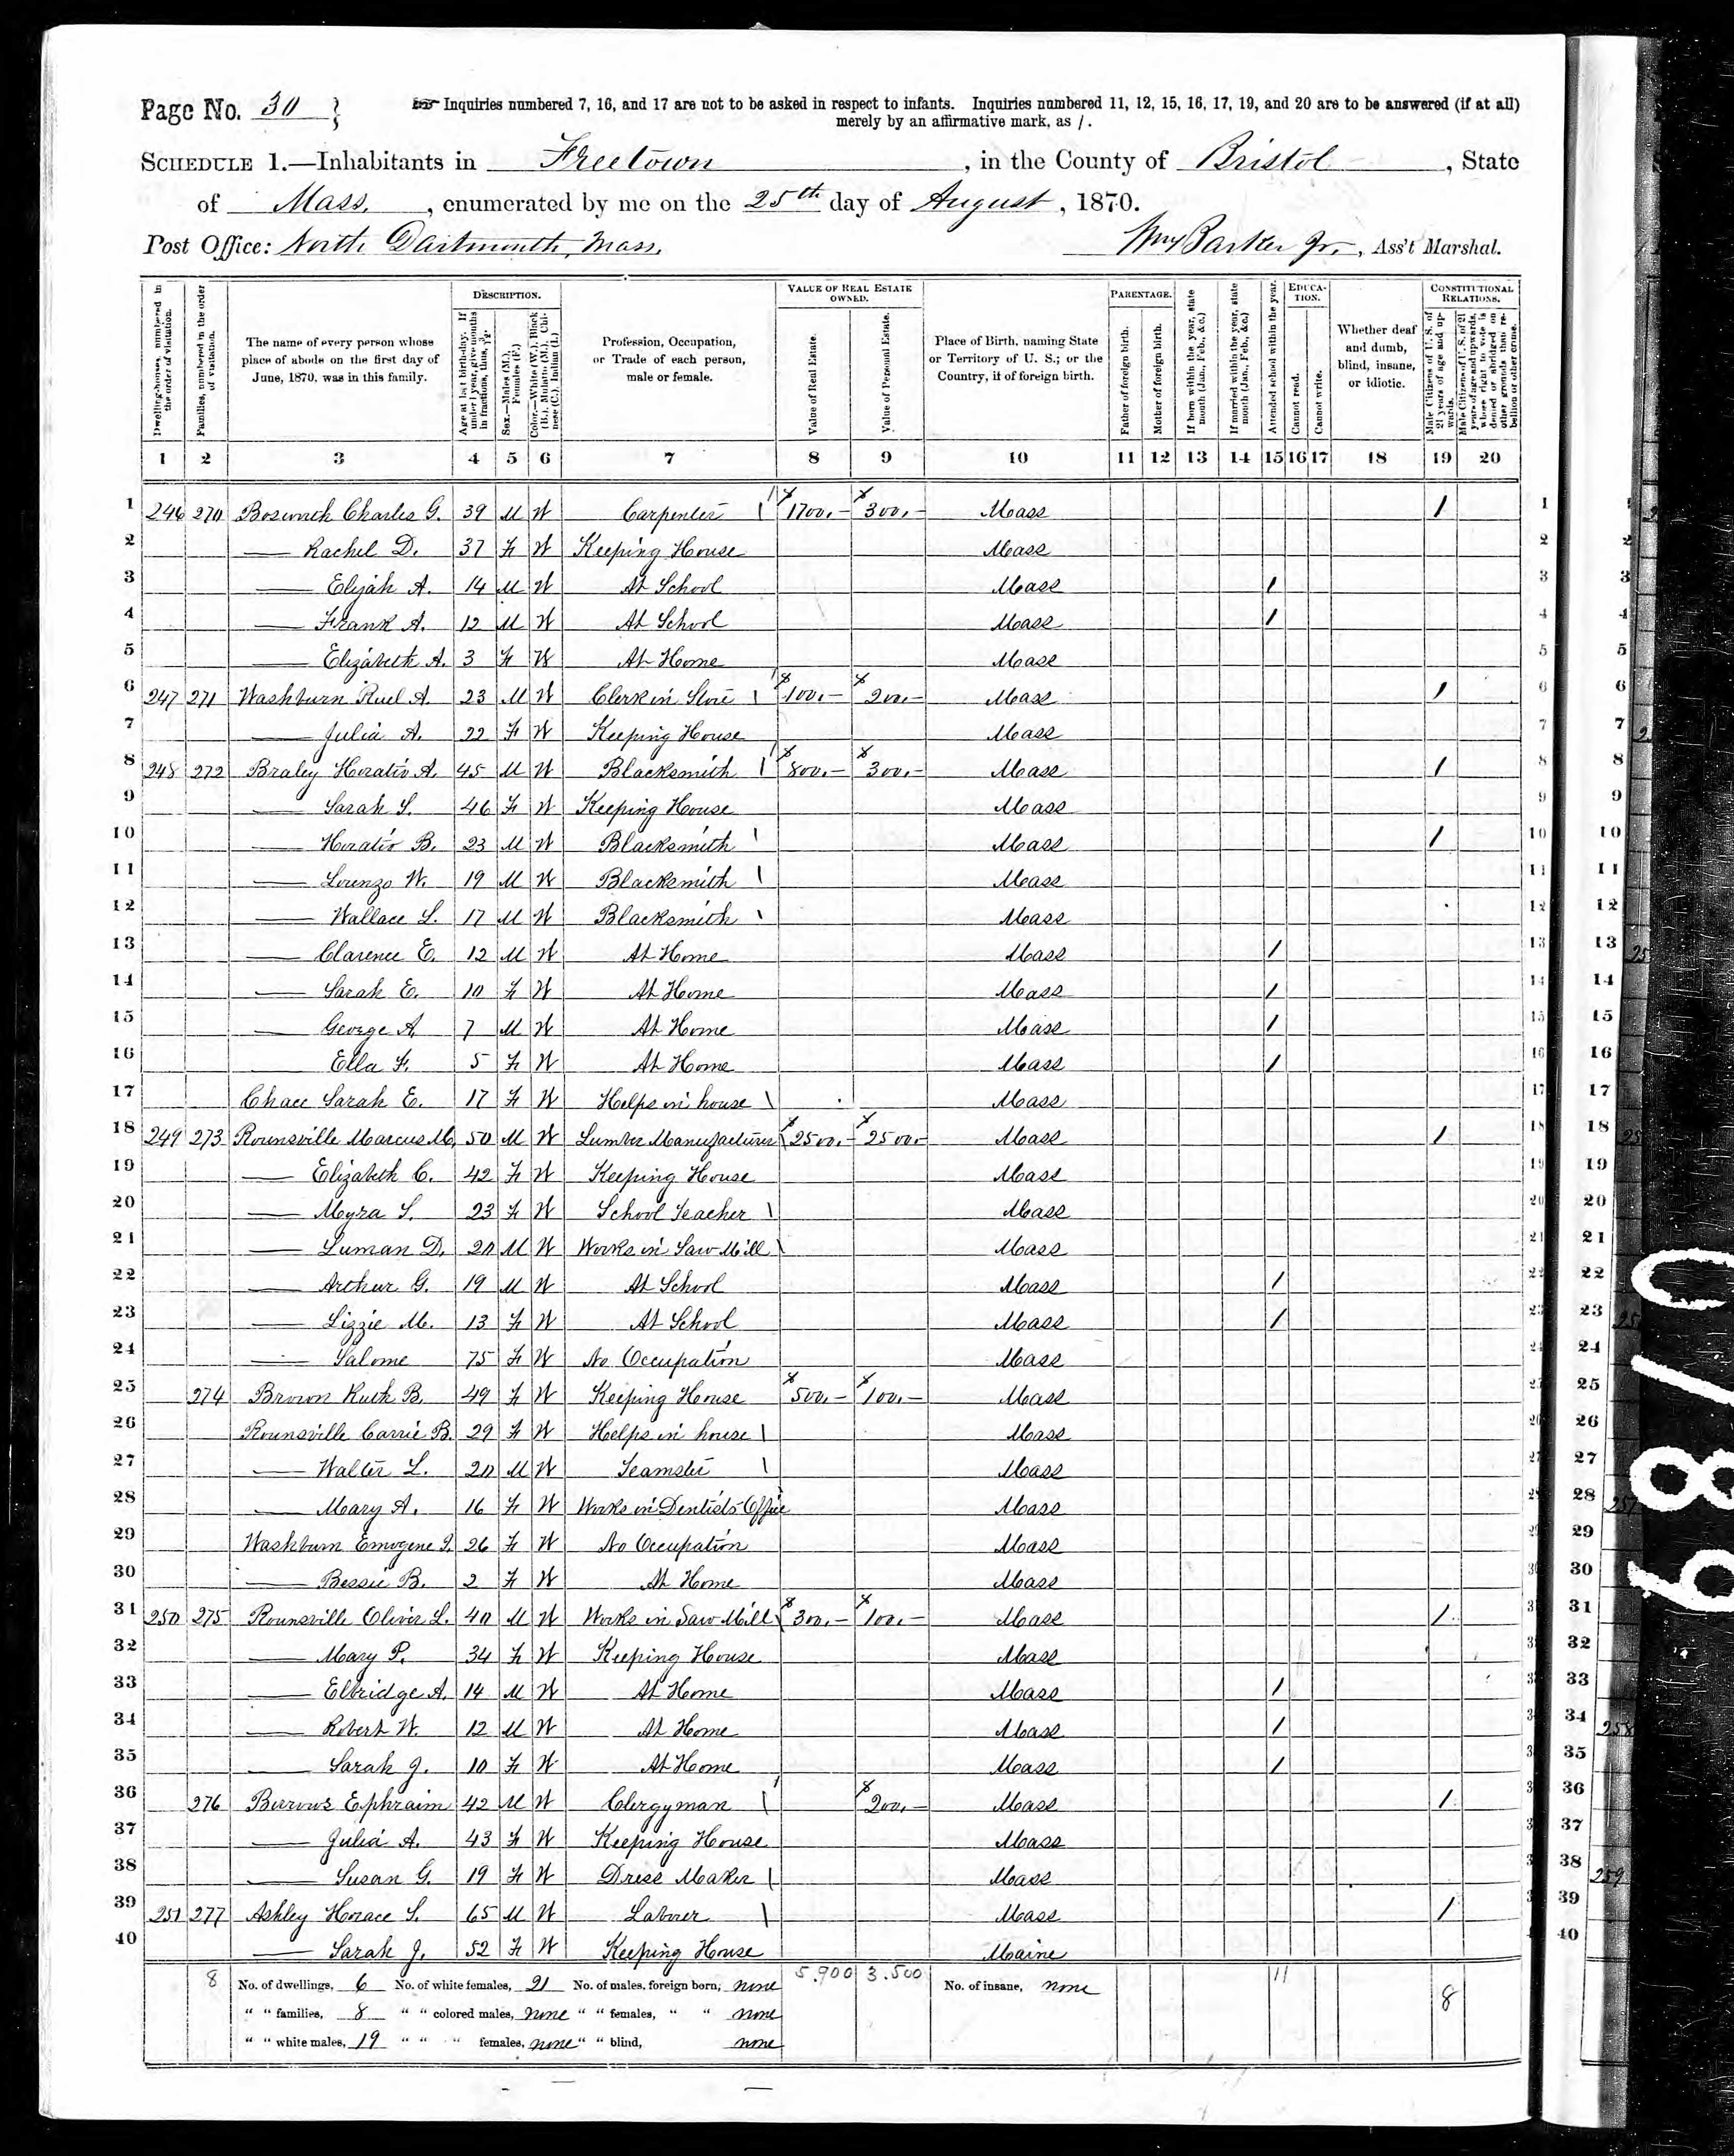 Page No. 30 }
Inquiries numbered 7, 16, and 17 are not to be asked in respect to infants. Inquiries numbered 11, 12, 15, 16, 17, 19, and 20 are to be answered (if at all)
merely by an affirmative mark, as /.
SCHEDULE 1.—Inhabitants in Freetown, in the County of Bristol, State
of Mass., enumerated by me on the 25th day of August, 1870.
Post Office: North Dartmouth, Mass. Wm Barker Jr., Ass't Marshal.
Dwelling-houses, numbered in the order of visitation.
Families, numbered in the order of visitation.
The name of every person whose place of abode on the first day of June, 1870, was in this family.
DESCRIPTION.
Age at last birth-day. If under 1 year, give months in fractions, thus, 3/12.
Sex.—Males (M.), Females (F.)
Color.—White (W.), Black (B.), Mulatto (M.), Chinese (C.), Indian (I.)
Profession, Occupation, or Trade of each person, male or female.
VALUE OF REAL ESTATE OWNED.
Value of Real Estate.
Value of Personal Estate.
Place of Birth, naming State or Territory of U. S.; or the Country, if of foreign birth.
PARENTAGE.
Father of foreign birth.
Mother of foreign birth.
If born within the year, state month (Jan., Feb., &c.)
If married within the year, state month (Jan., Feb., &c.)
Attended school within the year.
EDUCATION.
Cannot read.
Cannot write.
Whether deaf and dumb, blind, insane, or idiotic.
CONSTITUTIONAL RELATIONS.
Male Citizens of U. S. of 21 years of age and upwards.
Male Citizens of U. S. of 21 years of age and upwards, whose right to vote is denied or abridged on other grounds than rebellion or other crime.
1 2 3 4 5 6 7 8 9 10 11 12 13 14 15 16 17 18 19 20
1 246 270 Bosworth Charles G. 39 M W Carpenter $1700.- $300.- Mass / 1
2 — Rachel D. 37 F W Keeping House Mass 2
3 — Elijah A. 14 M W At School Mass / 3
4 — Frank A. 12 M W At School Mass / 4
5 — Elizabeth A. 3 F W At Home Mass 5
6 247 271 Washburn Ruel A. 23 M W Clerk in Store $100.- $200.- Mass / 6
7 — Julia A. 22 F W Keeping House Mass 7
8 248 272 Braley Horatio A. 45 M W Blacksmith $800.- $300.- Mass / 8
9 — Sarah S. 46 F W Keeping House Mass 9
10 — Horatio B. 23 M W Blacksmith Mass / 10
11 — Lorenzo W. 19 M W Blacksmith Mass 11
12 — Wallace L. 17 M W Blacksmith Mass 12
13 — Clarence E. 12 M W At Home Mass / 13
14 — Sarah E. 10 F W At Home Mass / 14
15 — George A. 7 M W At Home Mass / 15
16 — Ella F. 5 F W At Home Mass / 16
17 Chace Sarah E. 17 F W Helps in house Mass 17
18 249 273 Rounsville Marcus M. 50 M W Lumber Manufacturer $2500.- $2500.- Mass / 18
19 — Elizabeth C. 42 F W Keeping House Mass 19
20 — Myra S. 23 F W School Teacher Mass 20
21 — Luman D. 20 M W Works in Saw Mill Mass 21
22 — Arthur G. 19 M W At School Mass / 22
23 — Lizzie M. 13 F W At School Mass / 23
24 — Salome 75 F W No Occupation Mass 24
25 274 Brown Ruth B. 49 F W Keeping House $500.- $100.- Mass 25
26 Rounsville Carrie B. 29 F W Helps in house Mass 26
27 — Walter L. 20 M W Teamster Mass 27
28 — Mary A. 16 F W Works in Dentists Office Mass 28
29 Washburn Emogene I. 26 F W No Occupation Mass 29
30 — Bessie B. 2 F W At Home Mass 30
31 250 275 Rounsville Oliver L. 40 M W Works in Saw Mill $300.- $100.- Mass / 31
32 — Mary P. 34 F W Keeping House Mass 32
33 — Elbridge A. 14 M W At Home Mass / 33
34 — Robert W. 12 M W At Home Mass / 34
35 — Sarah J. 10 F W At Home Mass / 35
36 276 Burrows Ephraim 42 M W Clergyman $200.- Mass / 36
37 — Julia A. 43 F W Keeping House Mass 37
38 — Susan G. 19 F W Dress Maker Mass 38
39 251 277 Ashley Horace S. 65 M W Laborer Mass / 39
40 — Sarah J. 52 F W Keeping House Maine 40
8 No. of dwellings, 6 No. of white females, 21 No. of males, foreign born, none 5.900 3.500 No. of insane, none 11 8
" " families, 8 " " colored males, none " " females, " " none
" " white males, 19 " " " females, none " " blind, none
1870